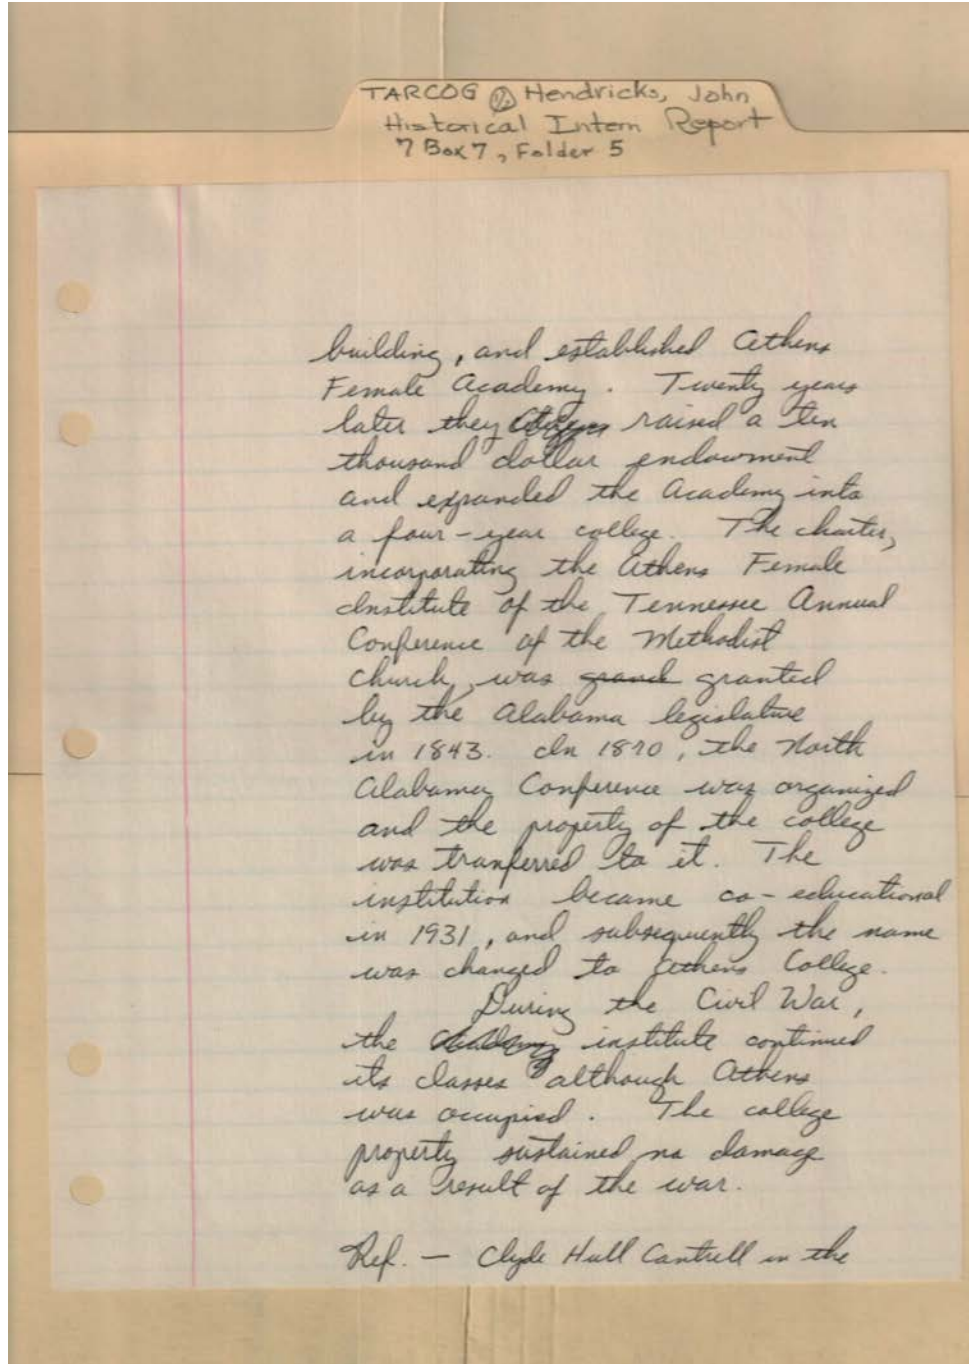 TARCOG Hendricks, John
Historical Intern Report
7 Box 7, Folder 5
building, and established Athens
Female Academy. Twenty years
later they raised a ten
thousand dollar endowment
and expanded the Academy into
a four-year college. The charter,
incorporating the Athens Female
Institute of the Tennessee Annual
Conference of the Methodist
church, was grand granted
by the Alabama legislature
in 1843. In 1870, the North
Alabama Conference was organized
and the property of the college
was tranferred to it. The
institution became co-educational
in 1931, and subsequently the name
was changed to Athens College.
During the Civil War,
the Academy institute continued
its classes although Athens
was occupied. The college
property sustained no damage
as a result of the war.
Ref. — Clyde Hull Cantrell in the